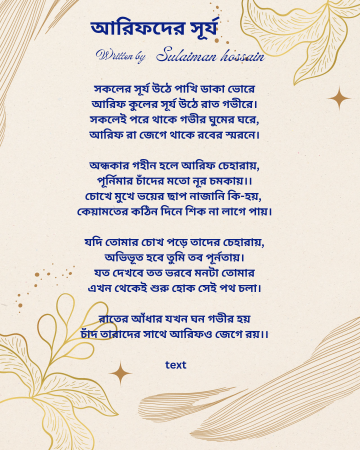 আরিফদের সূর্য
Written by Sulaiman hossain
সকলের সূর্য উঠে পাখি ডাকা ভোরে
আরিফ কুলের সূর্য উঠে রাত গভীরে।
সকলেই পরে থাকে গভীর ঘুমের ঘরে,
আরিফ রা জেগে থাকে রবের স্মরনে।
অন্ধকার গহীন হলে আরিফ চেহারায়,
পূর্নিমার চাঁদের মতো নূর চমকায়।।
চোখে মুখে ভয়ের ছাপ নাজানি কি-হয়,
কেয়ামতের কঠিন দিনে শিক না লাগে পায়।
যদি তোমার চোখ পড়ে তাদের চেহারায়,
অভিভূত হবে তুমি তব পূর্নতায়।
যত দেখবে তত ভরবে মনটা তোমার
এখন থেকেই শুরু হোক সেই পথ চলা।
রাতের আঁধার যখন ঘন গভীর হয়
চাঁদ তারাদের সাথে আরিফও জেগে রয়।।
text